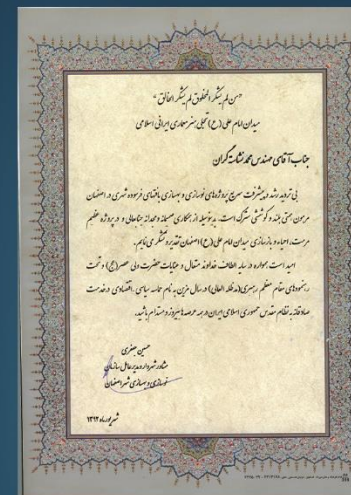 "من لم یشکر المخلوق لم یشکر الخالق"
میدان امام علی (ع) تجلی هنر معماری ایرانی اسلامی
جناب آقای مهندس محمد نشاسته گران
بی تردید رشد و پیشرفت سریع پروژه‌های نوسازی و بهسازی بافتهای فرسوده شهری در اصفهان
مرهون همتی بلند و کوششی سترگ است. بدینوسیله از همکاری صمیمانه و مجدانه جنابعالی در پروژه عظیم
مرمت، احیاء و بازسازی میدان امام علی (ع) اصفهان تقدیر و تشکر می نمایم.
امید است همواره در سایه الطاف خداوند متعال و عنایات حضرت ولی عصر (عج) و تحت
رهنمودهای مقام معظم رهبری (مدظله العالی) در سال مزین به نام حماسه سیاسی، اقتصادی در خدمت
صادقانه به نظام مقدس جمهوری اسلامی ایران در همه عرصه ها پیروز و مستدام باشید.
حسین جعفری
مشاور شهردار و مدیرعامل سازمان
نوسازی و بهسازی شهر اصفهان
شهریورماه ۱۳۹۲